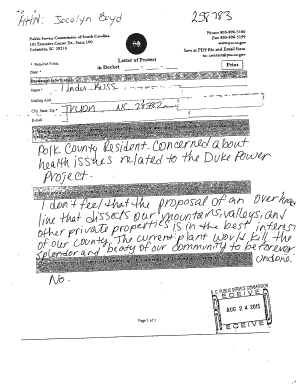 ATTN: Jocelyn Boyd
258783
Public Service Commission of South Carolina
101 Executive Center Dr., Suite 100
Columbia, SC 29210
Phone: 803-896-5100
Fax: 803-896-5199
www.psc.sc.gov
Save as PDF file and Email form
to: contact@psc.sc.gov
* Required Fields
Letter of Protest
in Docket
Print
Date *
Name *
Linda Russ
Mailing Add
City, State Zip *
Tryon NC 28782
E-mail
Polk County Resident. Concerned about
health issues related to the Duke Power
Project.
I don't feel that the proposal of an overhead
line that dissects our mountains, valleys, and
other private properties is in the best interest
of our county. The current plant would kill the
splendor and beaty of our community to be forever
undone.
No.
Page 1 of 1
S.C. PUBLIC SERVICE COMMISSION
RECEIVE
AUG 24 2015
RECEIVE